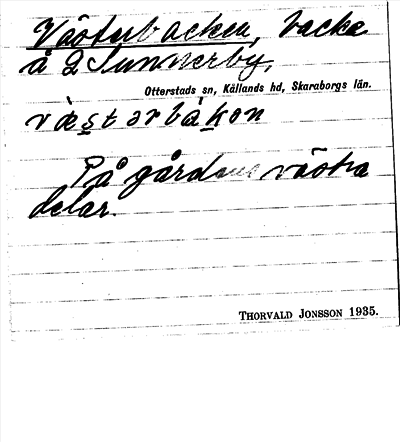 Västerbacken, backe
å 2 Sunnerby,
Otterstads sn, Kållands hd, Skaraborgs län.
væstərbàkən
På gårdens västra
delar.
THORVALD JONSSON 1935.